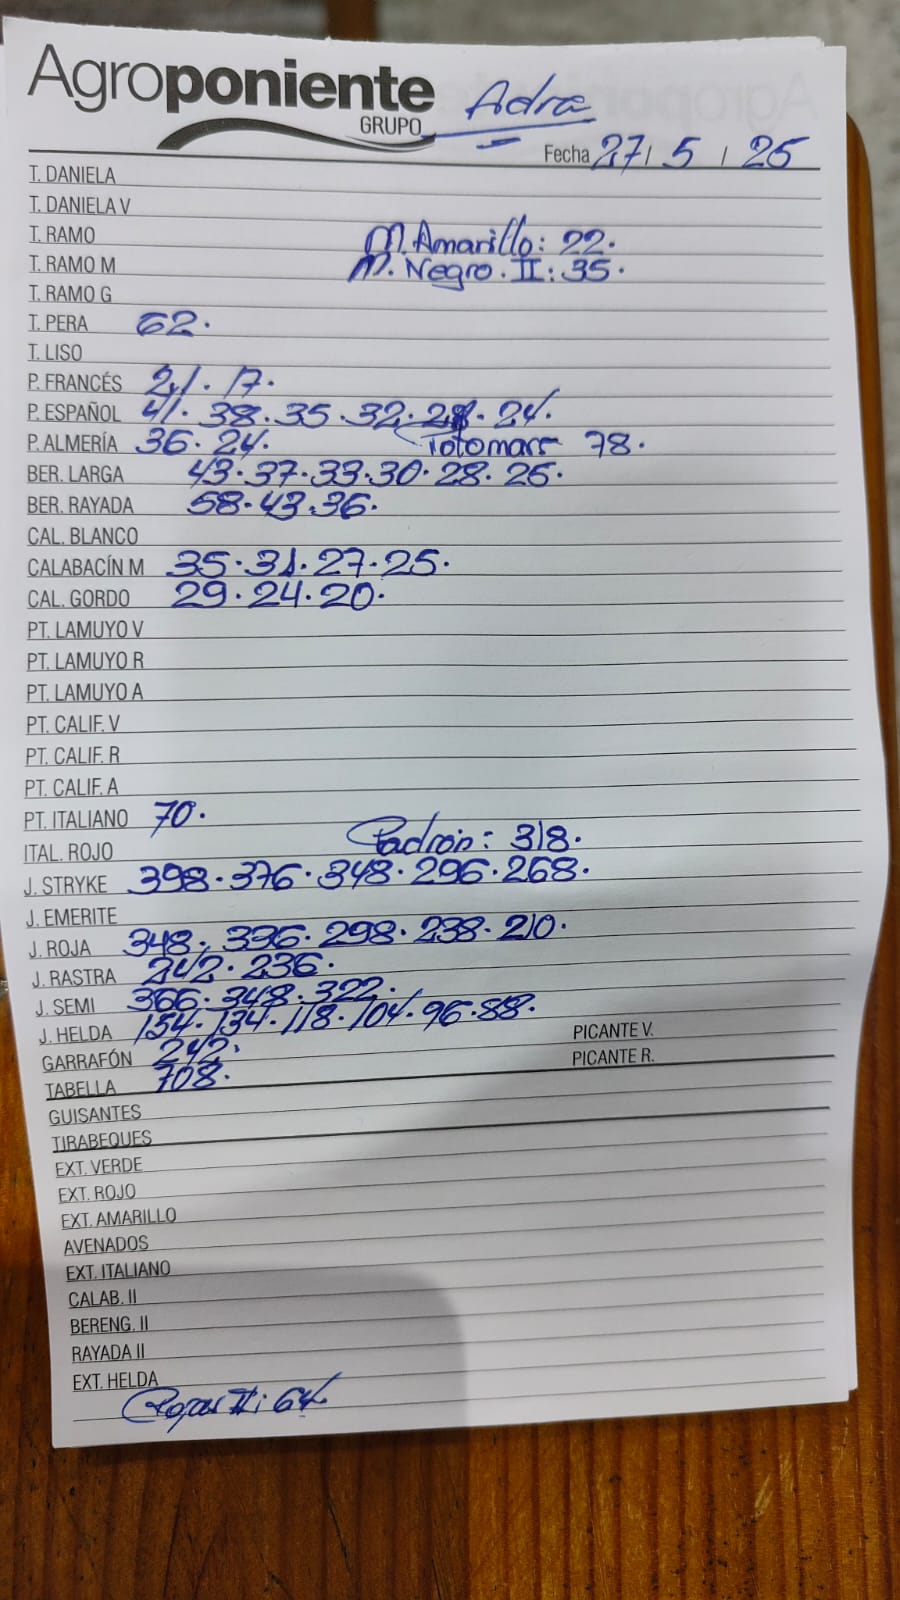 Agroponiente
GRUPO
Adra
Fecha 27 / 5 / 25
T. DANIELA
T. DANIELA V
T. RAMO M. Amarillo: 22.
T. RAMO M M. Negro. II: 35.
T. RAMO G
T. PERA 62.
T. LISO
P. FRANCÉS 21. 17.
P. ESPAÑOL 41. 38. 35. 32. 28. 24.
P. ALMERÍA 36. 24. 78.
BER. LARGA 43. 37. 33. 30. 28. 25.
BER. RAYADA 58. 43. 36.
CAL. BLANCO
CALABACÍN M 35. 31. 27. 25.
CAL. GORDO 29. 24. 20.
PT. LAMUYO V
PT. LAMUYO R
PT. LAMUYO A
PT. CALIF. V
PT. CALIF. R
PT. CALIF. A
PT. ITALIANO 70.
ITAL. ROJO Padrón: 318.
J. STRYKE 398. 376. 348. 296. 268.
J. EMERITE
J. ROJA 348. 336. 298. 238. 210.
J. RASTRA 242. 236.
J. SEMI 366. 348. 322.
J. HELDA 154. 134. 118. 104. 96. 88.
GARRAFÓN 242. PICANTE V.
TABELLA 708. PICANTE R.
GUISANTES
TIRABEQUES
EXT. VERDE
EXT. ROJO
EXT. AMARILLO
AVENADOS
EXT. ITALIANO
CALAB. II
BERENG. II
RAYADA II
EXT. HELDA
II: 64